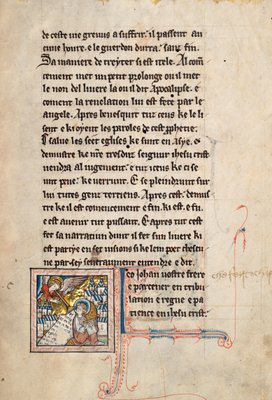 de ceste vie grevus a suffrir. il passent au
cune houre. e le guerdon durra sanz fin.
Sa maniere de treyter si est itele. Al com
cement met un petit prologe ou il met
le non del livere la ou il dit Apocalipse. e
coment la revelation lui est fete par le
angele. Apres beneiquit tuz ceus ke le li
sent e ki oyent les paroles de cest prophetie.
salue les seet eglises ke sunt en Asye. e
demustre ke nostre tresduz seignur ihesu crist
vendra al iugement. e tuz iceus ke ci se
unt pene. ke verrunt. E se pleindrunt sur
lui tutes genz terrienes. Apres cest. demus
tre ke il est comencement e fin. ki est. e fu
e est avenir tut pussant. E apres tut cest
fet sa narratiun dunt il fet sun livere ki
est partye en set visions si ke lem poet
par sey entendre e dit.
eo Iohan vostre frere
e parcener en tribu
lation e regne e pa
cience en ihesu crist.